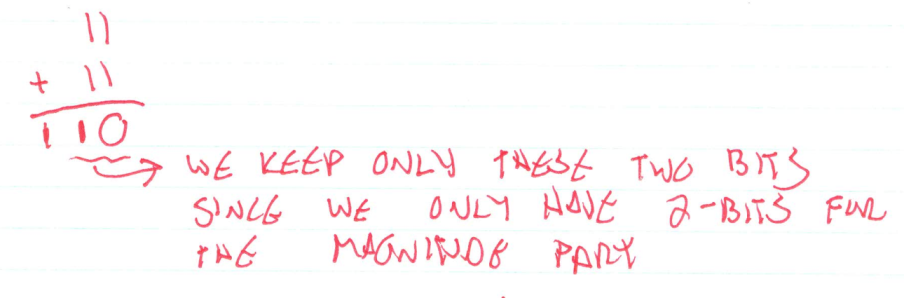 11
+ 11
110
WE KEEP ONLY THESE TWO BITS
SINCE WE ONLY HAVE 2-BITS FOR
THE MAGNITUDE PART